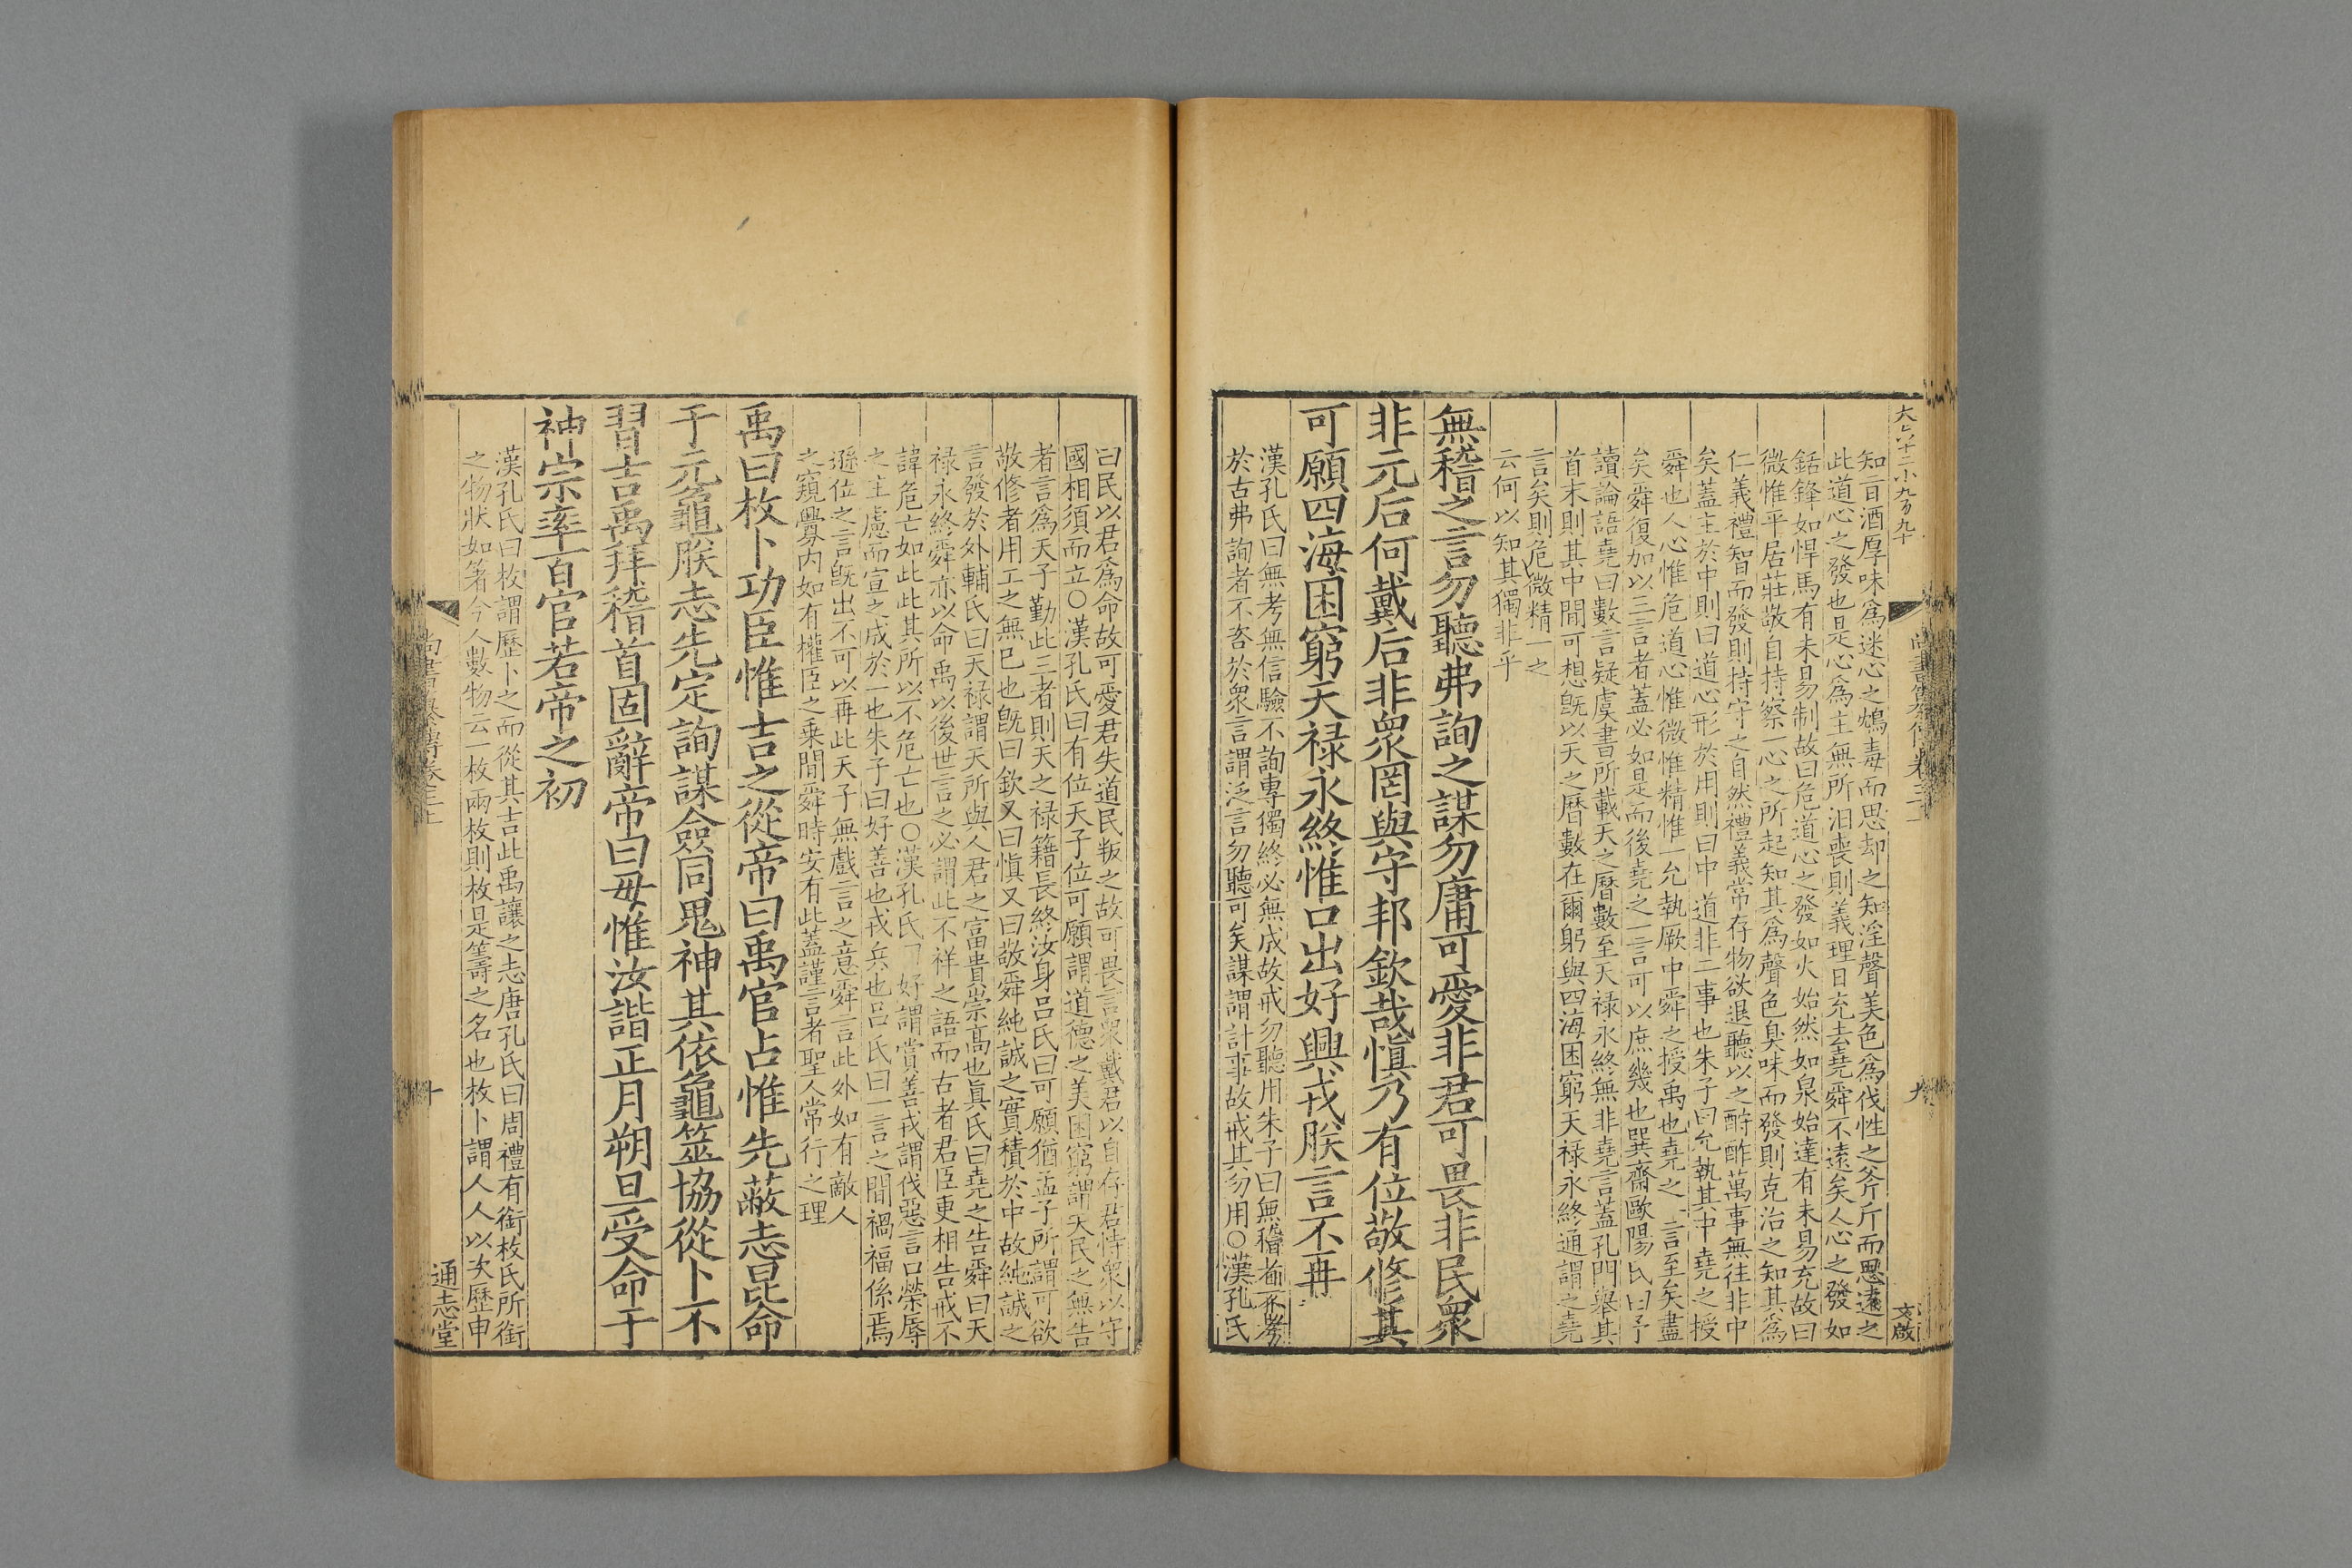 大六十二小九百九十
知旨酒厚味爲迷心之鴆毒而思却之知淫聲美色爲伐性之斧斤而思遠之
此道心之發也是心爲主無所汨喪則義理日充去堯舜不遠矣人心之發如
銛鋒如悍馬有未易制故曰危道心之發如火始然如泉始達有未易充故曰
微惟平居莊敬自持察一心之所起知其爲聲色臭味而發則克治之知其爲
仁義禮智而發則持守之自然禮義常存物欲退聽以之酬酢萬事無往非中
矣蓋主於中則曰道心形於用則曰中道非二事也朱子曰允執其中堯之授
舜也人心惟危道心惟微惟精惟一允執厥中舜之授禹也堯之一言至矣盡
矣舜復加以三言者蓋必如是而後堯之一言可以庶幾也巽齋歐陽氏曰予
讀論語堯曰數言疑虞書所載天之曆數至天禄永終無非堯言蓋孔門舉其
首末則其中間可想旣以天之曆數在爾躬與四海困窮天禄永終通謂之堯
言矣則危微精一之
云何以知其獨非乎
無稽之言勿聽弗詢之謀勿庸可愛非君可畏非民衆
非元后何戴后非衆罔與守邦欽哉慎乃有位敬修其
可願四海困窮天禄永終惟口出好興戎朕言不再
漢孔氏曰無考無信驗不詢專獨終必無成故戒勿聽用朱子曰無稽者不考
於古弗詢者不咨於衆言謂泛言勿聽可矣謀謂計事故戒其勿用○漢孔氏
尚書纂傳卷三上
九
文啟
曰民以君爲命故可愛君失道民叛之故可畏言衆戴君以自存君恃衆以守
國相須而立○漢孔氏曰有位天子位可願謂道德之美困窮謂天民之無告
者言爲天子勤此三者則天之禄籍長終汝身吕氏曰可願猶孟子所謂可欲
敬修者用工之無已也旣曰欽又曰慎又曰敬舜純誠之實積於中故純誠之
言發於外輔氏曰天禄謂天所與人君之富貴崇高也真氏曰堯之告舜曰天
禄永終舜亦以命禹以後世言之必謂此不祥之語而古者君臣更相告戒不
諱危亡如此此其所以不危亡也○漢孔氏曰好謂賞善戎謂伐惡言口榮辱
之主慮而宣之成於一也朱子曰好善也戎兵也吕氏曰一言之間禍福係焉
遜位之言旣出不可以再此天子無戲言之意舜言此外如有敵人
之窺釁内如有權臣之乗間舜時安有此蓋謹言者聖人常行之理
禹曰枚卜功臣惟吉之從帝曰禹官占惟先蔽志昆命
于元龜朕志先定詢謀僉同鬼神其依龜筮協從卜不
習吉禹拜稽首固辭帝曰毋惟汝諧正月朔旦受命于
神宗率百官若帝之初
漢孔氏曰枚謂歷卜之而從其吉此禹讓之志唐孔氏曰周禮有銜枚氏所銜
之物狀如箸今人數物云一枚兩枚則枚是籌之名也枚卜謂人人以次歷申
尚書纂傳卷三上
十
通志堂